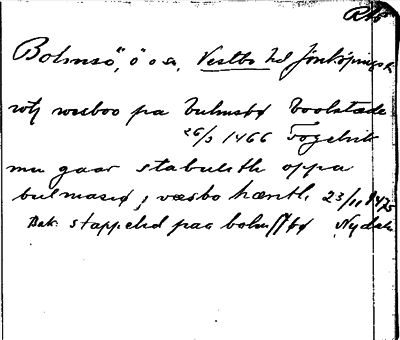 RAp
Bolmsö, ö o sn, Vestbo hd Jönköpings l.
wtj wesboo pa bulmsö boolstæde
26/3 1466 Fogelvik
mu gaar stabulsth oppa
bulmasiø j væsbo hæreth 23/11 1475
Bak: stappelsd paa bolmssø Nydala